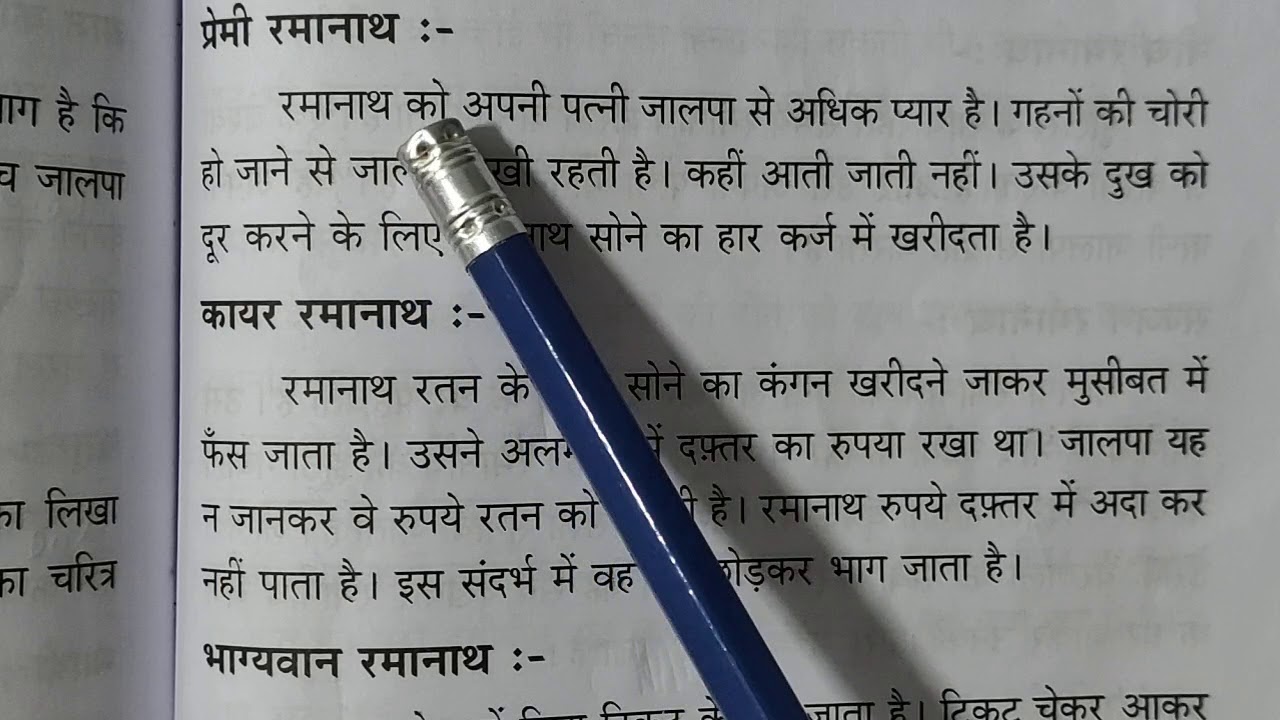 प्रेमी रमानाथ :-
रमानाथ को अपनी पत्नी जालपा से अधिक प्यार है। गहनों की चोरी
है कि
हो जाने से रहती है। कहीं आती जाती नहीं। उसके दुख को
जालपा
दूर करने के लिए सोने का हार कर्ज में खरीदता है।
कायर रमानाथ :-
रमानाथ रतन के सोने का कंगन खरीदने जाकर मुसीबत में
फँस जाता है। उसने दफ़्तर का रुपया रखा था। जालपा यह
लिखा
न जानकर वे रुपये रतन को है। रमानाथ रुपये दफ़्तर में अदा कर
चरित्र
नहीं पाता है। इस संदर्भ में वह भाग जाता है।
भाग्यवान रमानाथ :-
जाता है। टिकट चेकर आकर